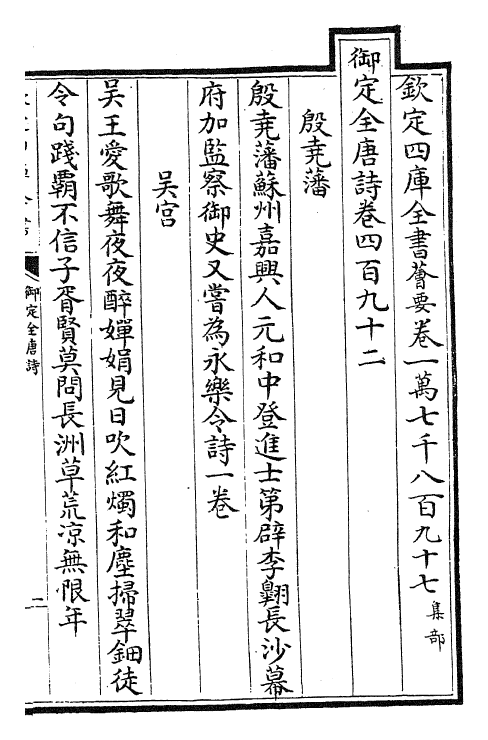 欽定四庫全書薈要卷一萬七千八百九十七 集部
御定全唐詩卷四百九十二
殷堯藩
殷堯藩蘇州嘉興人元和中登進士第辟李翺長沙幕
府加監察御史又嘗為永樂令詩一卷
吴宫
吴王愛歌舞夜夜醉嬋娟見日吹紅燭和塵掃翠鈿徒
令句踐霸不信子胥賢莫問長洲草荒凉無限年
御定全唐詩